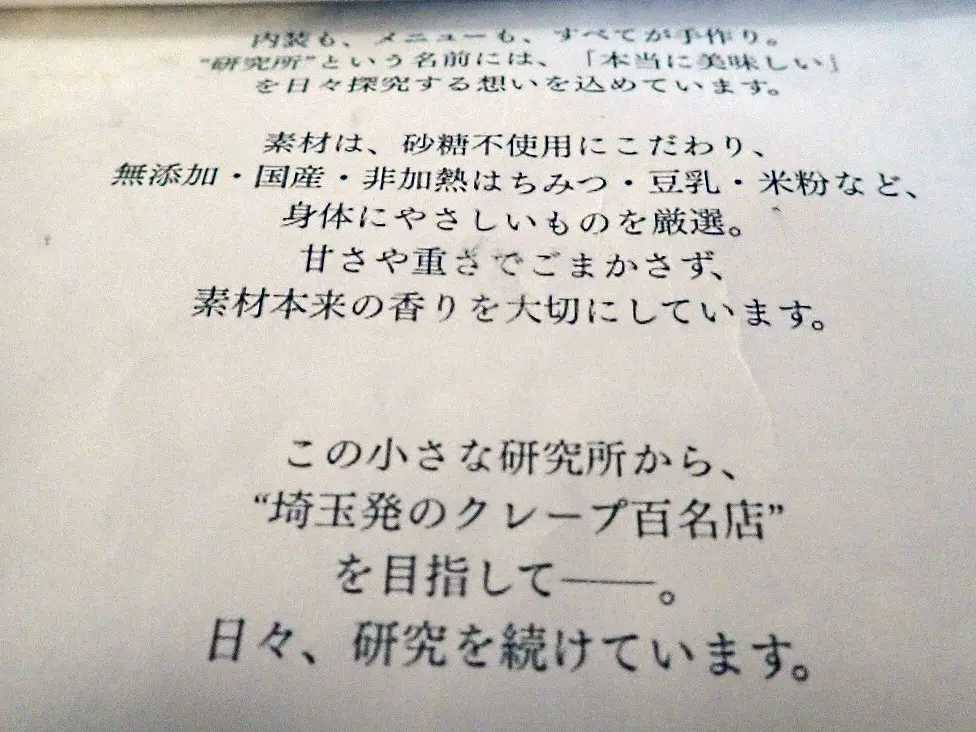 内装も、メニューも、すべてが手作り。
“研究所”という名前には、「本当に美味しい」
を日々探究する想いを込めています。
素材は、砂糖不使用にこだわり、
無添加・国産・非加熱はちみつ・豆乳・米粉など、
身体にやさしいものを厳選。
甘さや重さでごまかさず、
素材本来の香りを大切にしています。
この小さな研究所から、
“埼玉発のクレープ百名店”
を目指して――。
日々、研究を続けています。